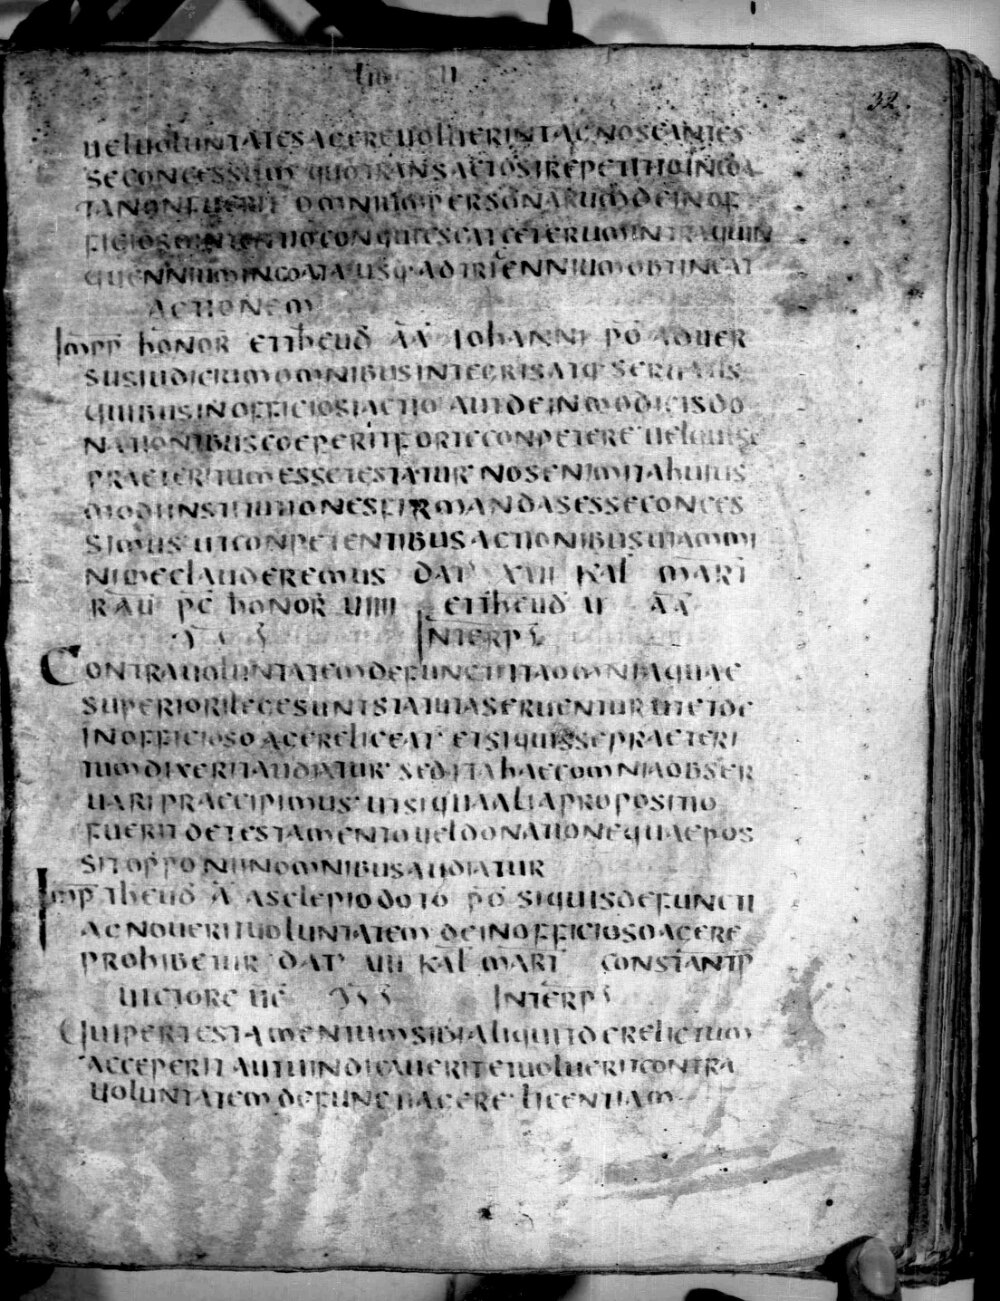 LIB II
32.
UELUOLUNTATES AGERE UOLUERINT AGNOSCANT ES
SE CONCESSUM QUO TRANSACTO SI REPETITIO INCOA
TA NON FUERIT OMNIUM PERSONARUM DE INOF
FICIOSO INTENTIO CONQUIESCAT CETERUM INTRA QUIN
QUENNIUM INCOATA USQ AD TRIENNIUM OBTINEAT
ACTIONEM
IMPP HONOR ET THEUD AA IOHANNI PO ADUER
SUS IUDICIUM OMNIBUS INTEGRIS ATQ SERUATIS
QUIBUS INOFFICIOSI ACTIO AUT DE INMODICIS DO
NATIONIBUS COEPERIT FORTE CONPETERE UEL QUI SE
PRAETERITUM ESSE TESTATUR NOS ENIM ITA HUIUS
MODI INSTITUTIONES FIRMANDAS ESSE CONCES
SIMUS UT CONPETENTIBUS ACTIONIBUS UIAM MI
NIME CLAUDEREMUS DAT XVII KAL MARI
RAU PC HONOR UIIII ET THEUD U AA
INTERP
CONTRA UOLUNTATEM DEFUNCTI ITA OMNIA QUAE
SUPERIORI LEGE SUNT STATUTA SERUENTUR UT ET DE
INOFFICIOSO AGERE LICEAT ET SI QUIS SE PRAETERI
TUM DIXERIT AUDIATUR SED ITA HAEC OMNIA OBSER
UARI PRAECIPIMUS UT SI QUA ALIA PROPOSITIO
FUERIT DE TESTAMENTO UEL DONATIONE QUAE POS
SIT OPPONI IN OMNIBUS AUDIATUR
IMP THEUD A ASCLEPIODOTO PO SI QUIS DEFUNCTI
AGNOUERIT UOLUNTATEM DE INOFFICIOSO AGERE
PROHIBETUR DAT UII KAL MART CONSTANTP
UICTORE UC INTERP
QUI PER TESTAMENTUM SIBI ALIQUIT DERELICTUM
ACCEPERIT AUT UINDICAUERIT ET UOLUERIT CONTRA
UOLUNTATEM DEFUNCTI AGERE LICENTIAM